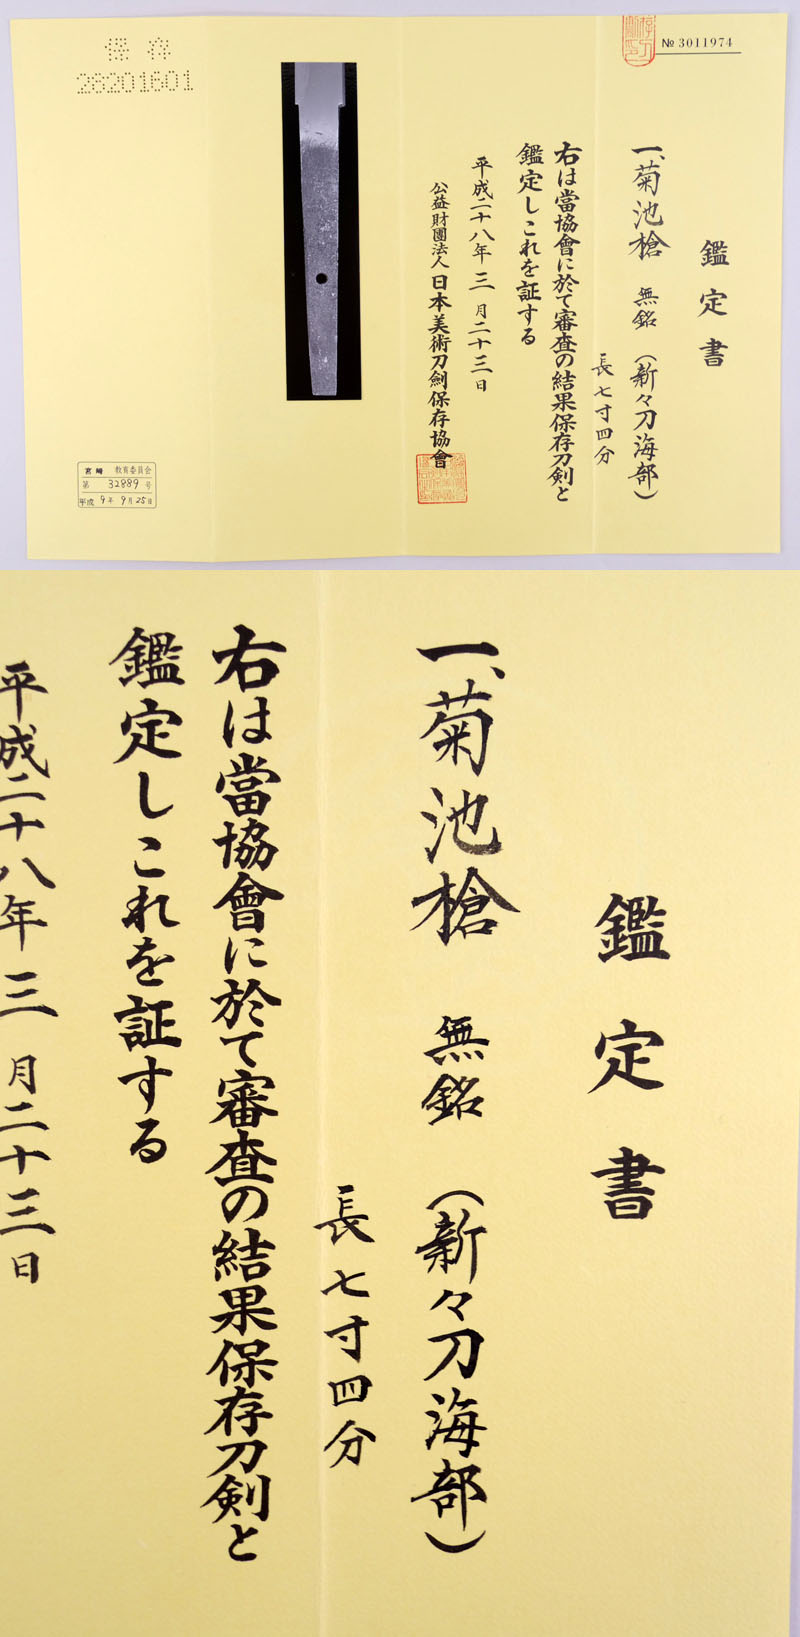 № 3011974
鑑定書
一、菊池槍 無銘 (新々刀海部)
長七寸四分
右は當協會に於て審査の結果保存刀剣と
鑑定しこれを証する
平成二十八年三月二十三日
公益財團法人日本美術刀劍保存協會
保存
28201601
宮崎 教育委員会
第 32889 号
平成 9年 9月 25日
鑑定書
一、菊池槍 無銘 (新々刀海部)
長七寸四分
右は當協會に於て審査の結果保存刀剣と
鑑定しこれを証する
平成二十八年三月二十三日